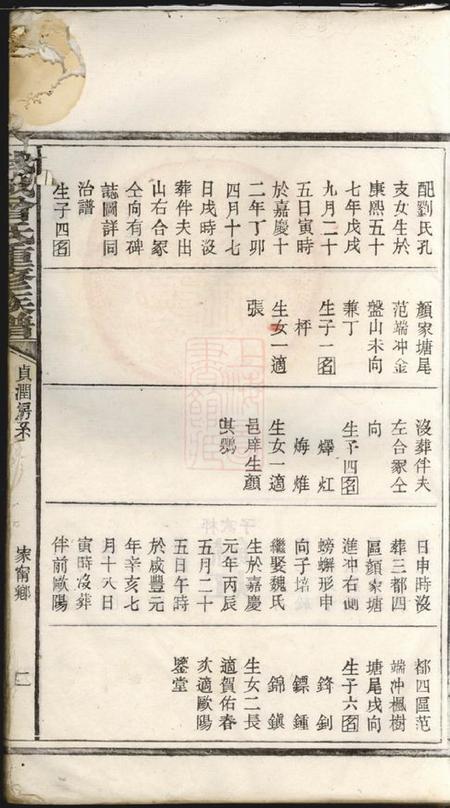 配劉氏孔
支女生於
康熙五十
七年戊戌
九月二十
五日寅時
於嘉慶十
二年丁卯
四月十七
日戌時沒
葬伴夫出
山右合冢
仝向有碑
誌圖詳同
治譜
生子四名
顏家塘尾
范端冲金
盤山未向
兼丁
生子一名
枰
生女一適
張
沒葬伴夫
左合冢仝
向
生子四名
燡 灴
烸 焳
生女一適
邑庠生顏
其鸚
日申時沒
葬三都四
區顏家塘
進冲右側
螃蟹形申
向子培
繼娶魏氏
生於嘉慶
元年丙辰
五月二十
五日午時
於咸豐元
年辛亥七
月十八日
寅時沒葬
伴前歐陽
都四區范
端冲楓樹
塘尾戌向
生子六名
鋒 釗
鏢 鍾
錦 鎭
生女二長
適賀佑春
次適歐陽
鑒堂
氏重修族譜
貞潤房系
寧鄉
二